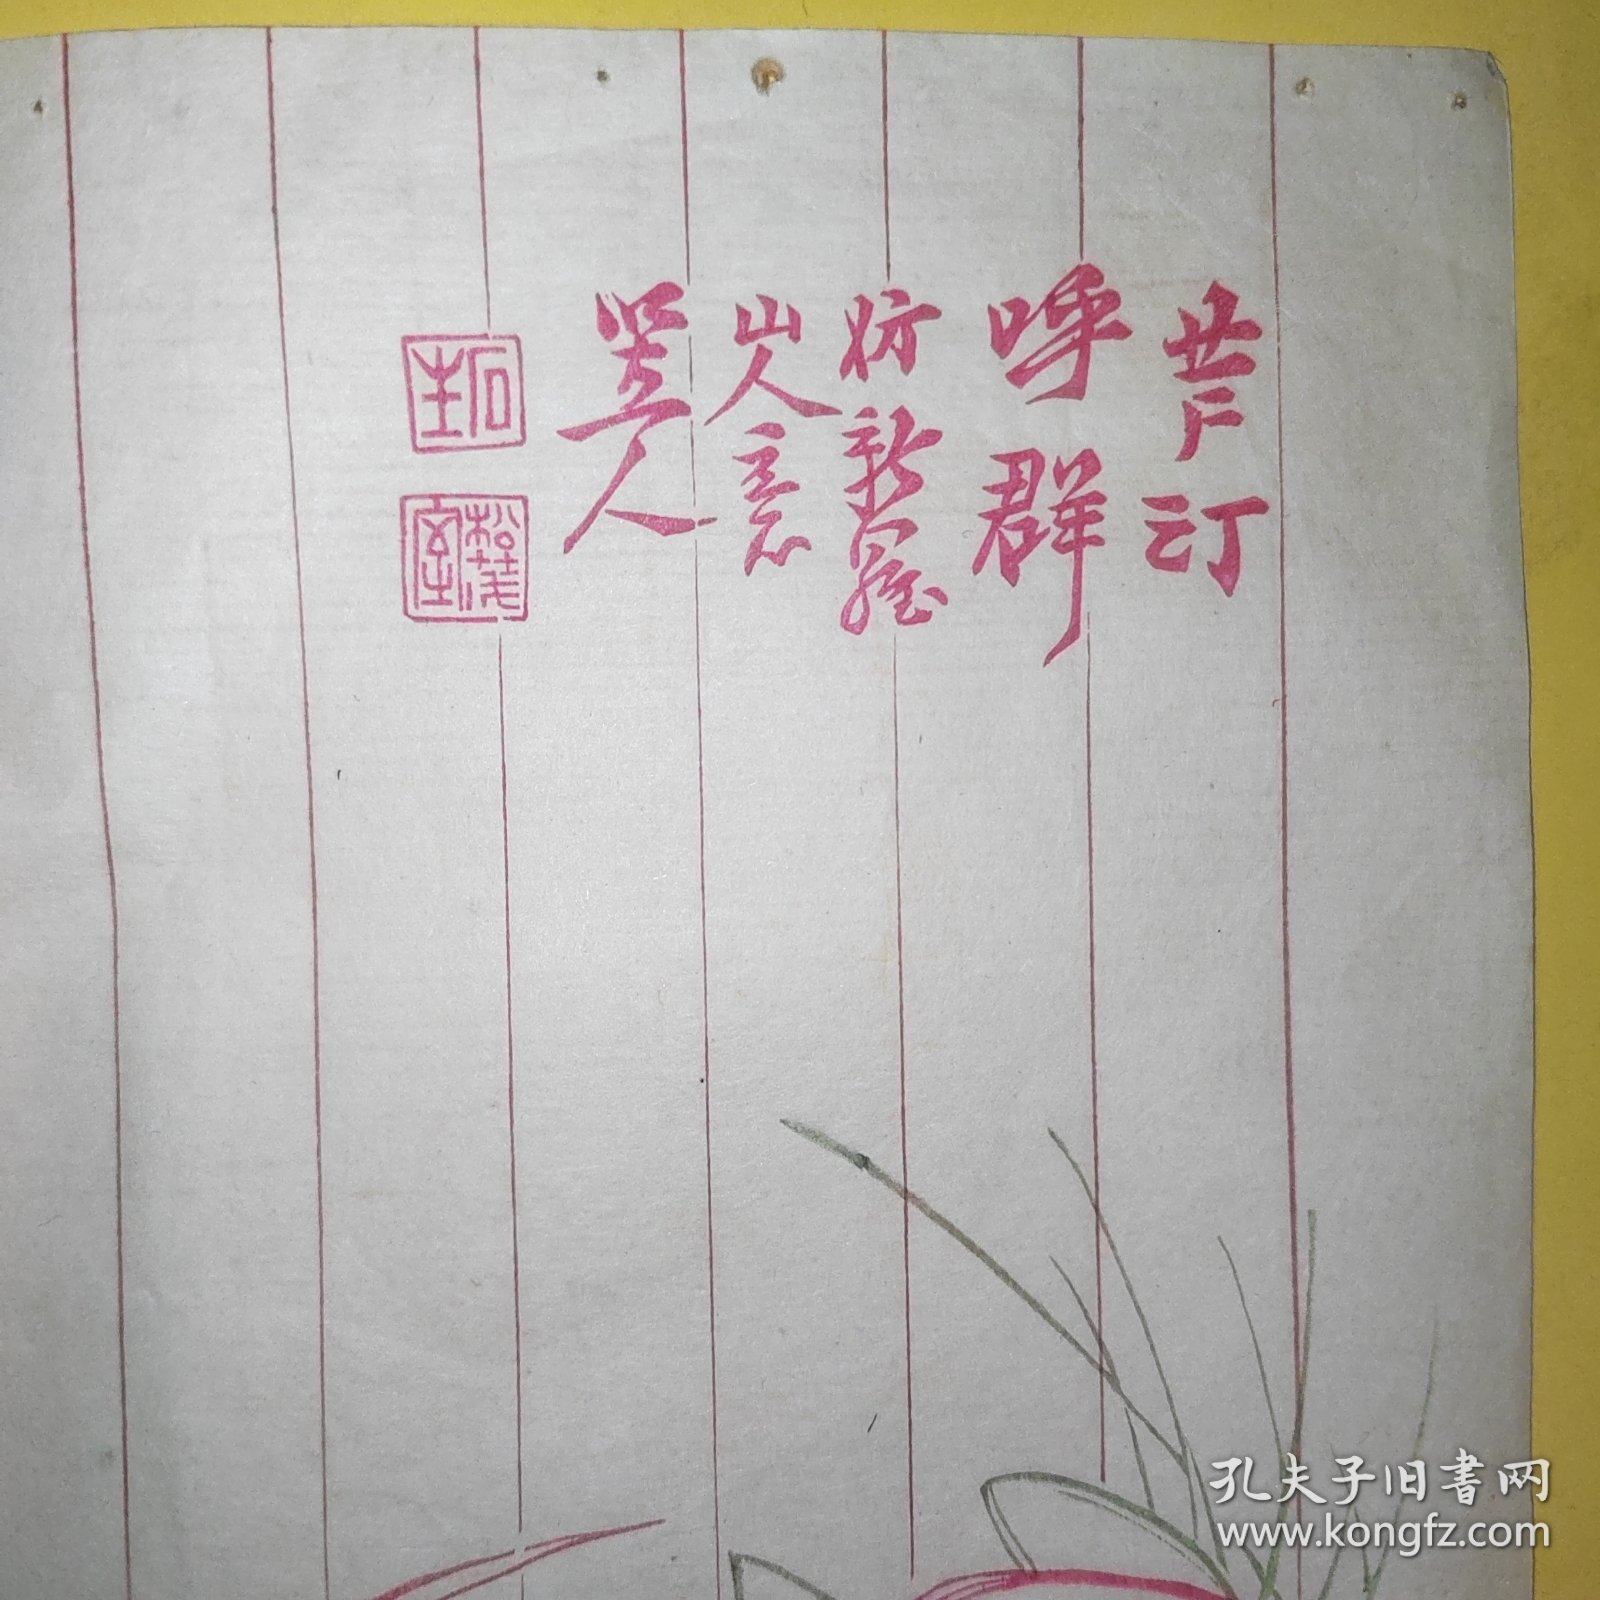 芦汀
呼群
仿新羅
山人意
罢人
石
主
松茂
室
孔夫子旧书网
www.kongfz.com